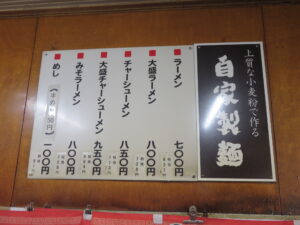 上質な小麦粉で作る
自家製麺
ラーメン 七〇〇円
大盛ラーメン 八〇〇円
チャーシューメン 八五〇円
大盛チャーシューメン 九五〇円
みそラーメン 八〇〇円
めし 一〇〇円